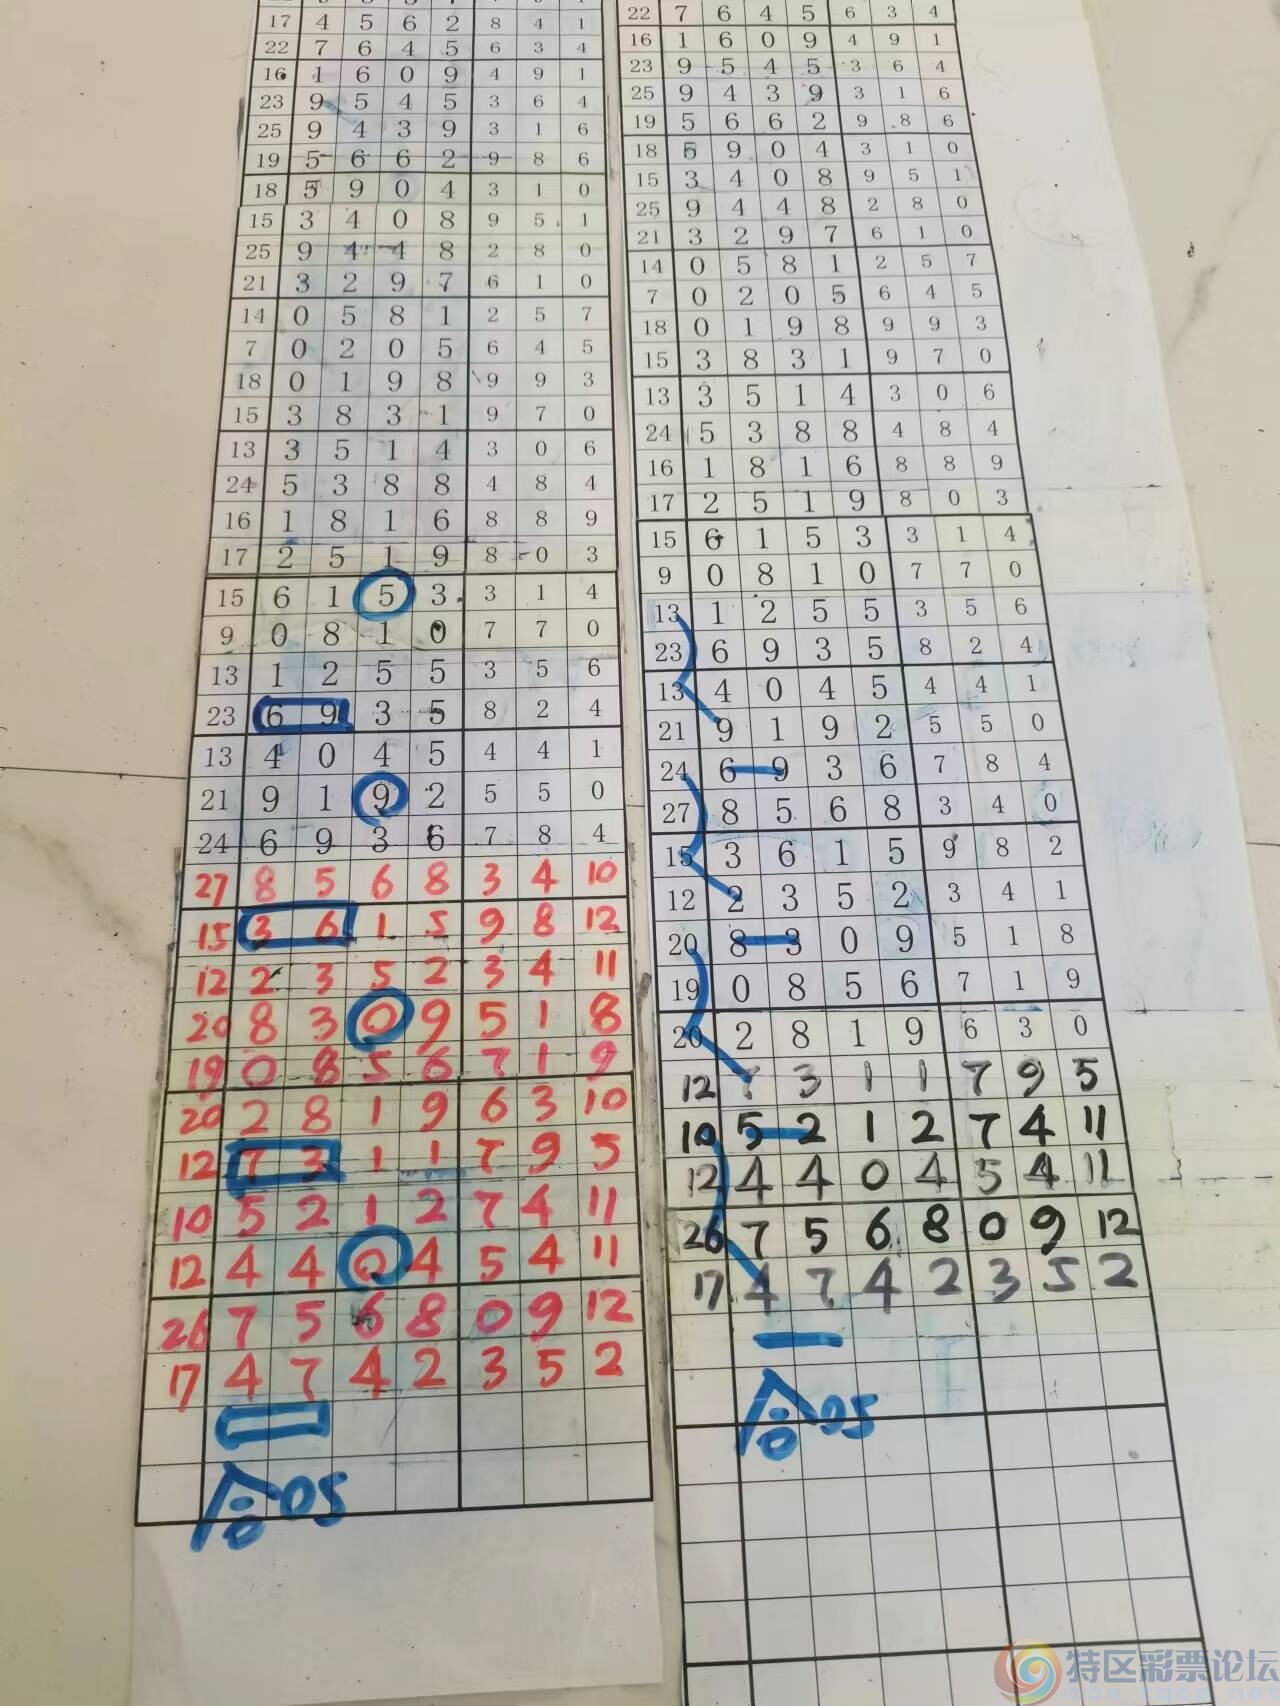 17 4 5 6 2 8 4 1
22 7 6 4 5 6 3 4
16 1 6 0 9 4 9 1
23 9 5 4 5 3 6 4
25 9 4 3 9 3 1 6
19 5 6 6 2 9 8 6
18 5 9 0 4 3 1 0
15 3 4 0 8 9 5 1
25 9 4 4 8 2 8 0
21 3 2 9 7 6 1 0
14 0 5 8 1 2 5 7
7 0 2 0 5 6 4 5
18 0 1 9 8 9 9 3
15 3 8 3 1 9 7 0
13 3 5 1 4 3 0 6
24 5 3 8 8 4 8 4
16 1 8 1 6 8 8 9
17 2 5 1 9 8 0 3
15 6 1 5 3 3 1 4
9 0 8 1 0 7 7 0
13 1 2 5 5 3 5 6
23 6 9 3 5 8 2 4
13 4 0 4 5 4 4 1
21 9 1 9 2 5 5 0
24 6 9 3 6 7 8 4
27 8 5 6 8 3 4 10
15 3 6 1 5 9 8 12
12 2 3 5 2 3 4 11
20 8 3 0 9 5 1 8
19 0 8 5 6 7 1 9
20 2 8 1 9 6 3 10
12 7 3 1 1 7 9 5
10 5 2 1 2 7 4 11
12 4 4 0 4 5 4 11
26 7 5 6 8 0 9 12
17 4 7 4 2 3 5 2
合05
22 7 6 4 5 6 3 4
16 1 6 0 9 4 9 1
23 9 5 4 5 3 6 4
25 9 4 3 9 3 1 6
19 5 6 6 2 9 8 6
18 5 9 0 4 3 1 0
15 3 4 0 8 9 5 1
25 9 4 4 8 2 8 0
21 3 2 9 7 6 1 0
14 0 5 8 1 2 5 7
7 0 2 0 5 6 4 5
18 0 1 9 8 9 9 3
15 3 8 3 1 9 7 0
13 3 5 1 4 3 0 6
24 5 3 8 8 4 8 4
16 1 8 1 6 8 8 9
17 2 5 1 9 8 0 3
15 6 1 5 3 3 1 4
9 0 8 1 0 7 7 0
13 1 2 5 5 3 5 6
23 6 9 3 5 8 2 4
13 4 0 4 5 4 4 1
21 9 1 9 2 5 5 0
24 6 9 3 6 7 8 4
27 8 5 6 8 3 4 0
15 3 6 1 5 9 8 2
12 2 3 5 2 3 4 1
20 8 3 0 9 5 1 8
19 0 8 5 6 7 1 9
20 2 8 1 9 6 3 0
12 7 3 1 1 7 9 5
10 5 2 1 2 7 4 11
12 4 4 0 4 5 4 11
26 7 5 6 8 0 9 12
17 4 7 4 2 3 5 2
合05
特区彩票论坛